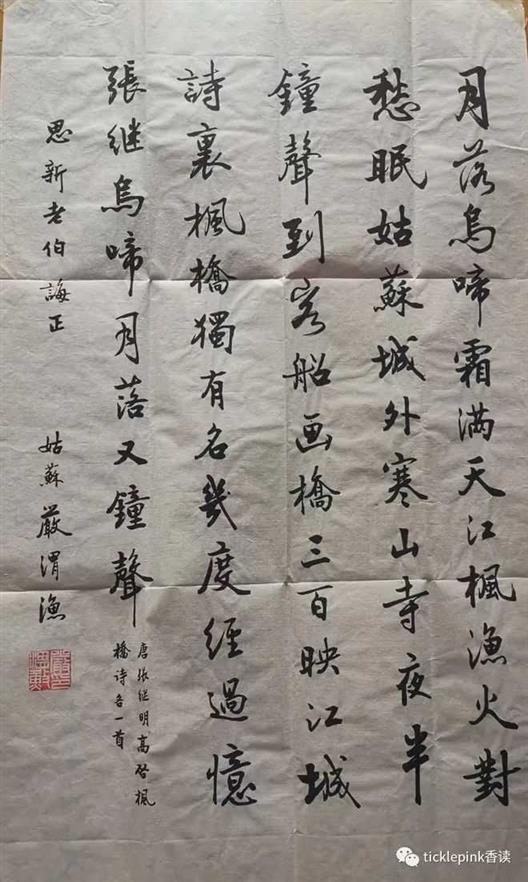 月落烏啼霜满天江楓漁火對
愁眠姑蘇城外寒山寺夜半
鐘聲到客船画橋三百映江城
詩裏楓橋獨有名幾度經過憶
張继烏啼月落又鐘聲
唐張继明高啓楓
橋诗各一首
思新老伯誨正
姑蘇嚴渭漁
ticklepink香读